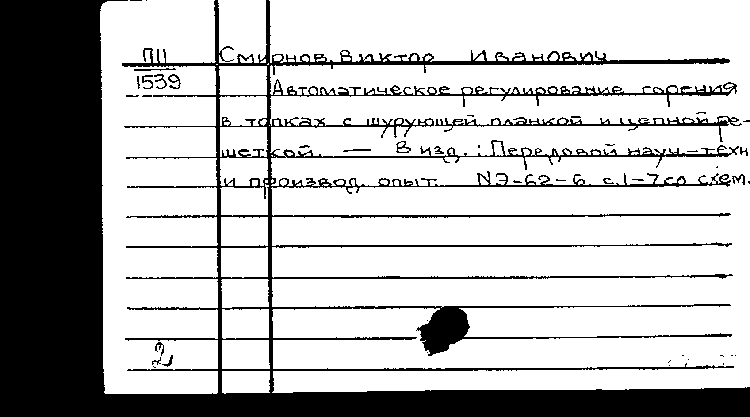 ПII Смирнов, Виктор Иванович
1539
Автоматическое регулирование горения
в топках с шурующей планкой и цепной ре-
шеткой. — В изд.: Передовой науч-техн
и производ. опыт. №Э-62-6 с.1-7 со схем.
2